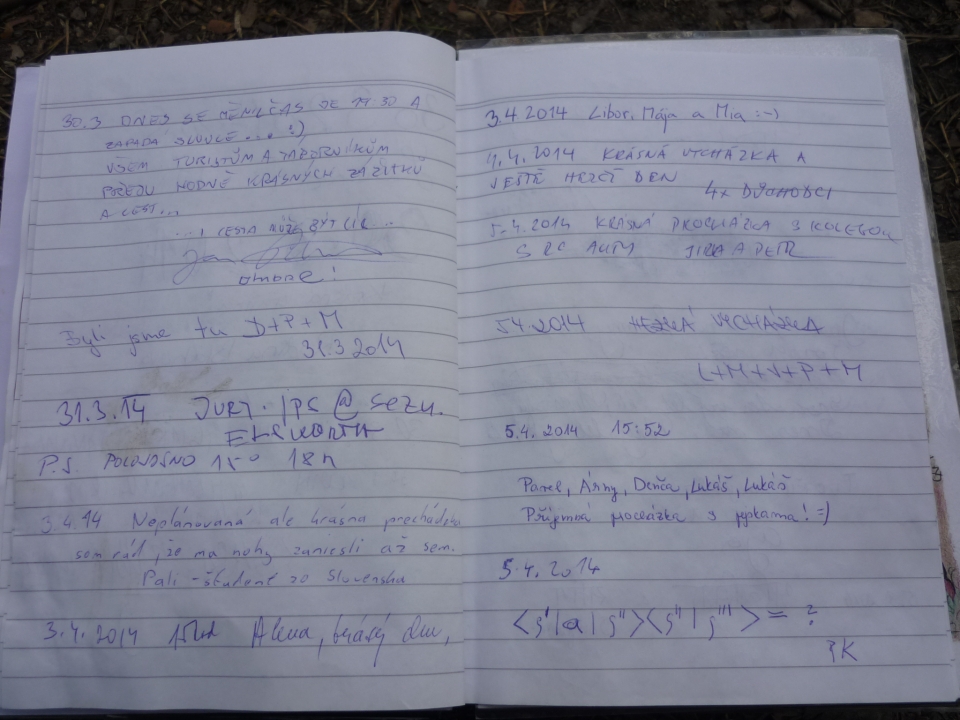 30.3 DNES SE MĚNIL ČAS JE 19 30 A
ZAPADÁ SLUNCE.... :)
VŠEM TURISTŮM A TÁBORNÍKŮM
PŘEJU HODNĚ KRÁSNÝCH ZÁŽITKŮ
A CEST...
... I CESTA MŮŽE BÝT CÍL ...
Byli jsme tu D+P+M
31.3 2014
31.3.14
P.S. POLOJASNO 15° 18h
3.4.14 Neplánovaná ale krásna prechádzka
som rád, že ma nohy zaniesli až sem.
Pali - študent zo Slovenska
3.4.2014 Alena, krásný den,
3.4 2014 Libor, Mája a Mia :-)
4.4.2014 KRÁSNÁ VYCHÁZKA A
JEŠTĚ HEZČÍ DEN 4x DŮCHODCI
5.4.2014 KRÁSNÁ PROCHÁZKA S KOLEGOU
S RC AUTY JIRA A PETR
5.4.2014 HEZKÁ VYCHÁZKA
L+M+V+P+M
5.4. 2014 15:52
Pavel, Anny, Denča, Lukáš, Lukáš
Příjemná procházka s pejskama! =)
5.4.2014
<ξ'|a|ξ''><ξ''|ξ'''> = ?